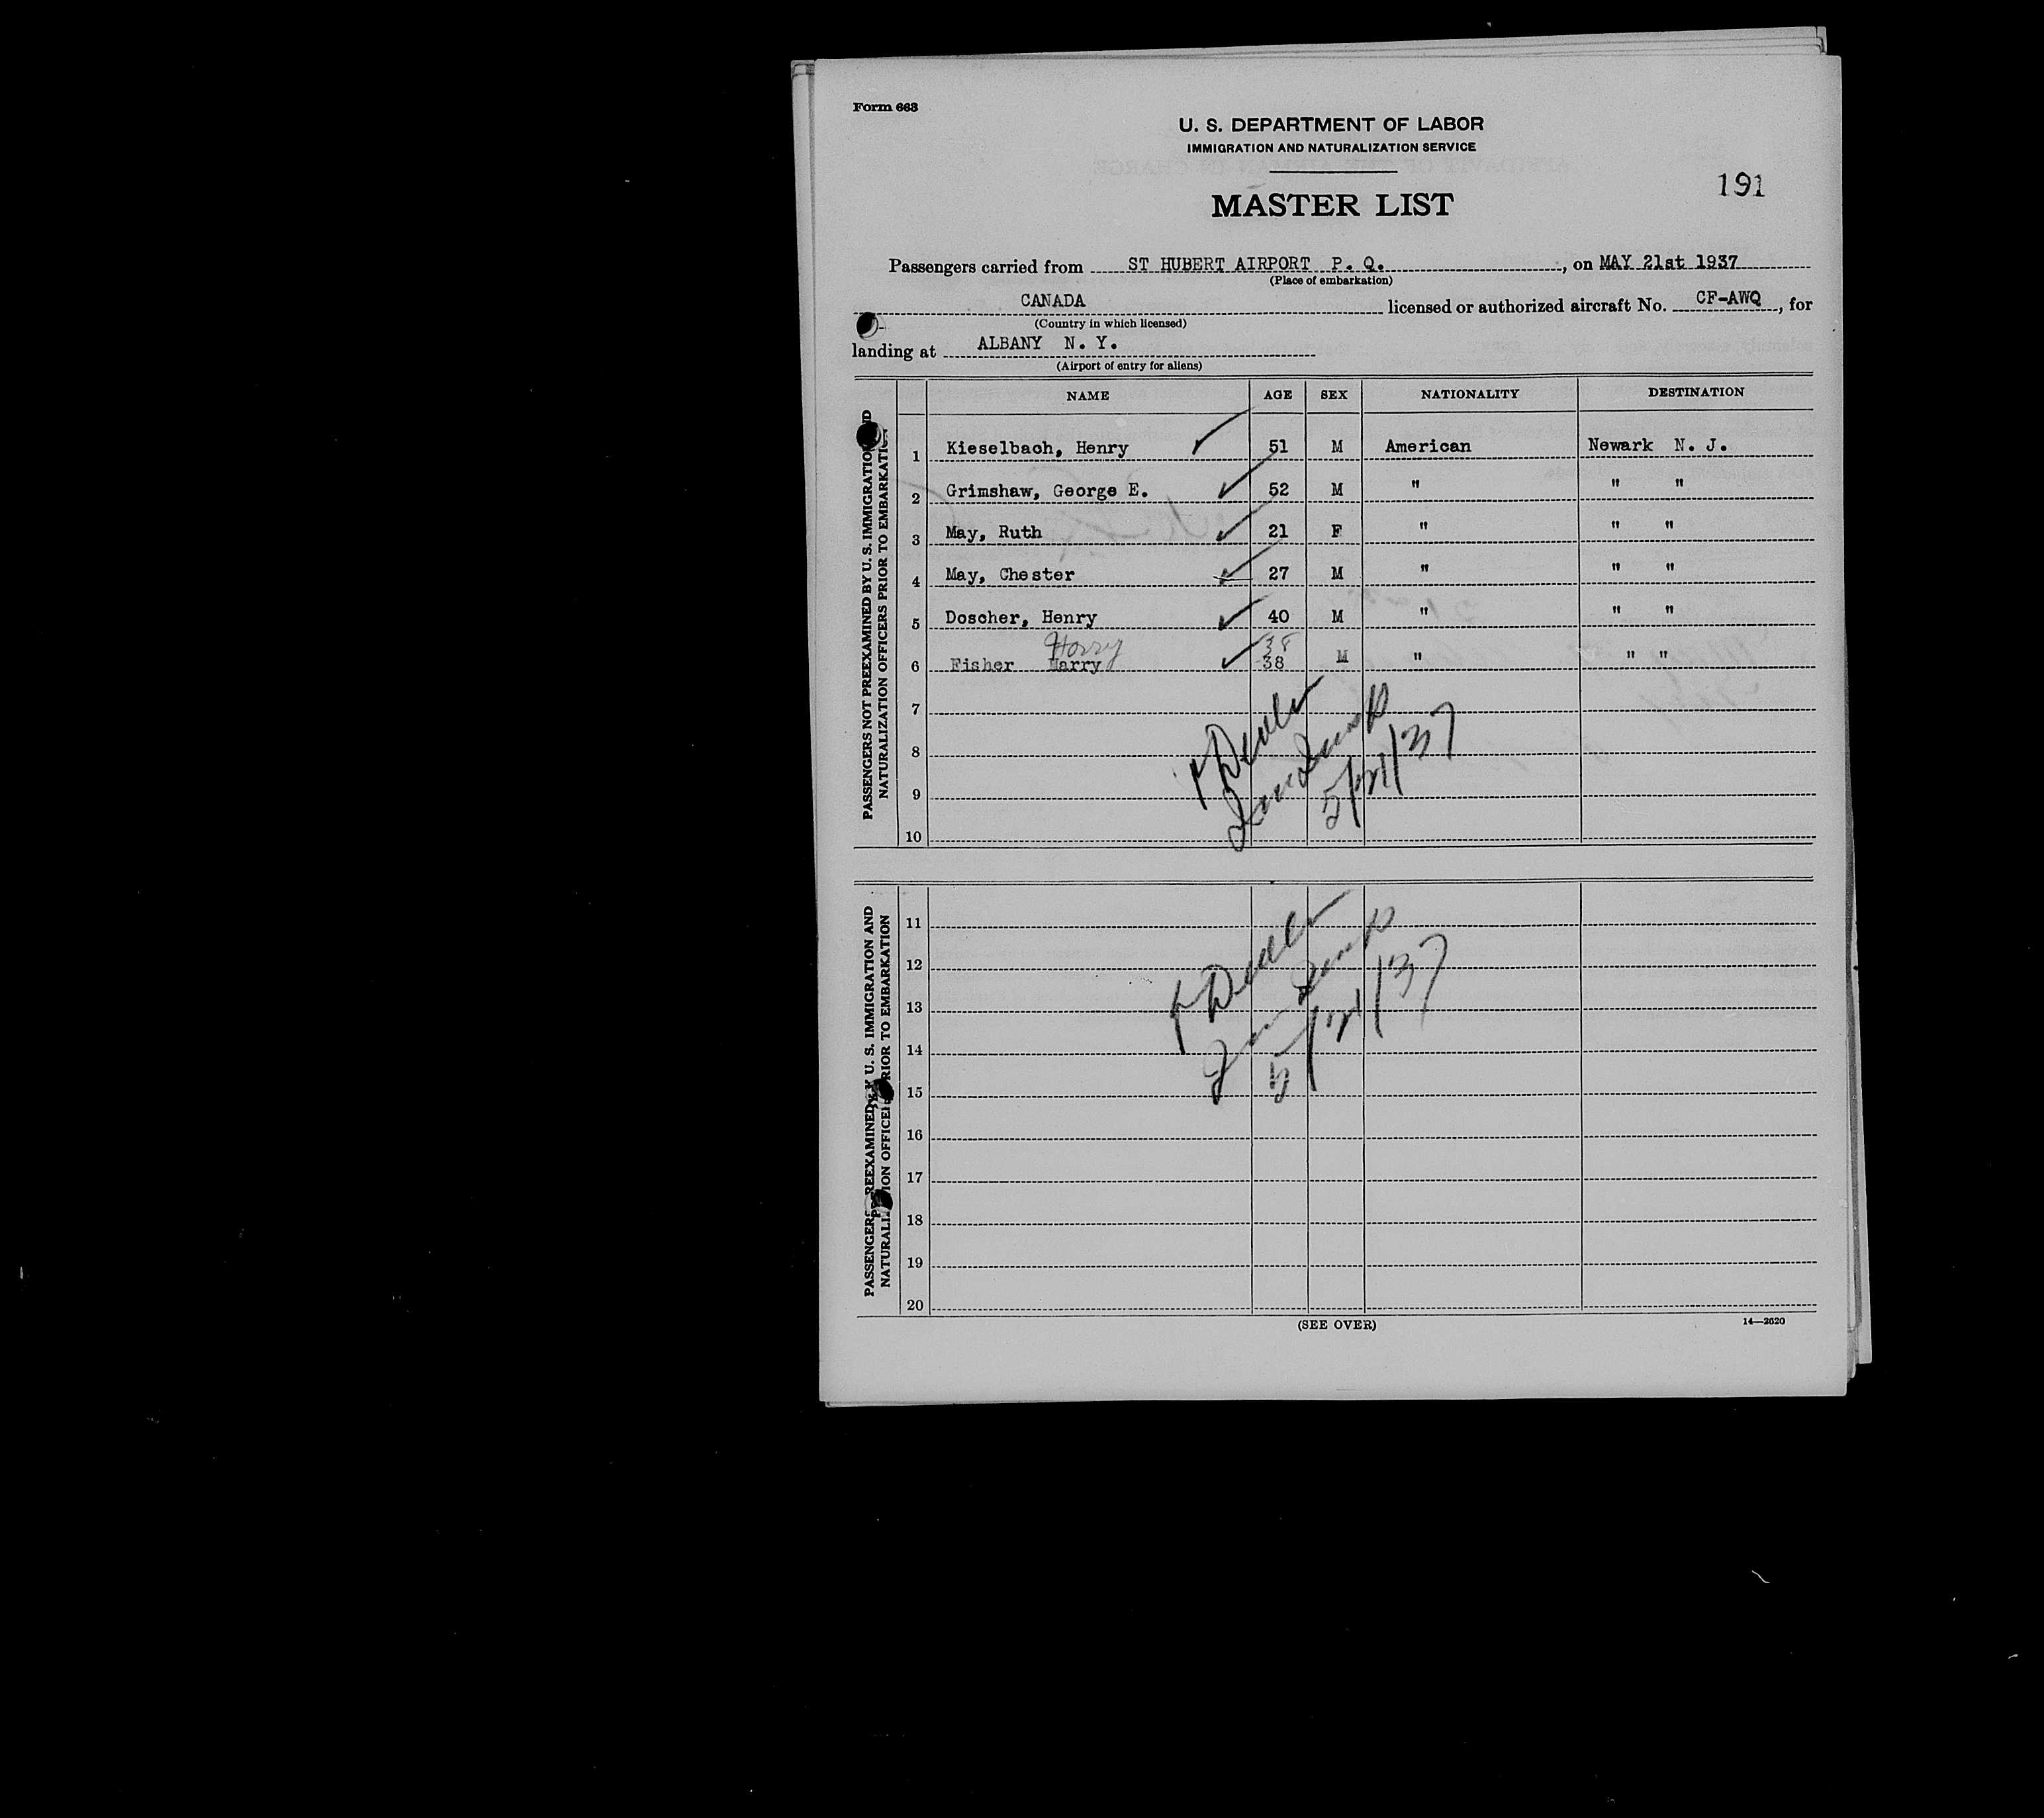 Form 663
U. S. DEPARTMENT OF LABOR
IMMIGRATION AND NATURALIZATION SERVICE
191
MASTER LIST
Passengers carried from ST HUBERT AIRPORT P. Q. , on MAY 21st 1937
(Place of embarkation)
CANADA licensed or authorized aircraft No. CF-AWQ , for
(Country in which licensed)
landing at ALBANY N. Y.
(Airport of entry for aliens)
PASSENGERS NOT PREEXAMINED BY U. S. IMMIGRATION AND
NATURALIZATION OFFICERS PRIOR TO EMBARKATION
NAME AGE SEX NATIONALITY DESTINATION
1 Kieselbach, Henry 51 M American Newark N. J.
2 Grimshaw, George E. 52 M " " "
3 May, Ruth 21 F " " "
4 May, Chester 27 M " " "
5 Doscher, Henry 40 M " " "
Harry 38
6 Fisher Harry 38 M " " "
7
8
9
10
5/21/37
PASSENGERS PREEXAMINED BY U. S. IMMIGRATION AND
NATURALIZATION OFFICERS PRIOR TO EMBARKATION
11
12
13
14
15
16
17
18
19
20
5/21/37
(SEE OVER)
14—2620